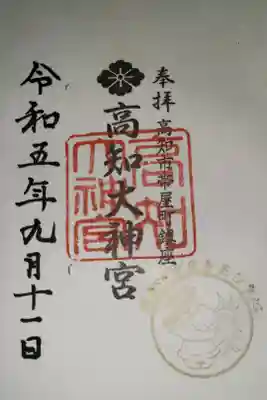 奉拝 高知市帯屋町鎮座
高知大神宮
高知
大神宮
令和五年九月十一日